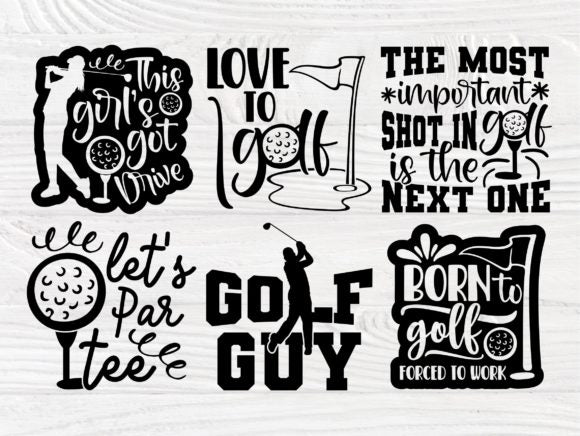 This
girl's
got
Drive
LOVE
TO
golf
THE MOST
*important*
SHOT IN golf
is the
NEXT ONE
let's
Par
tee
GOLF
GUY
BORN to
golf
FORCED TO WORK